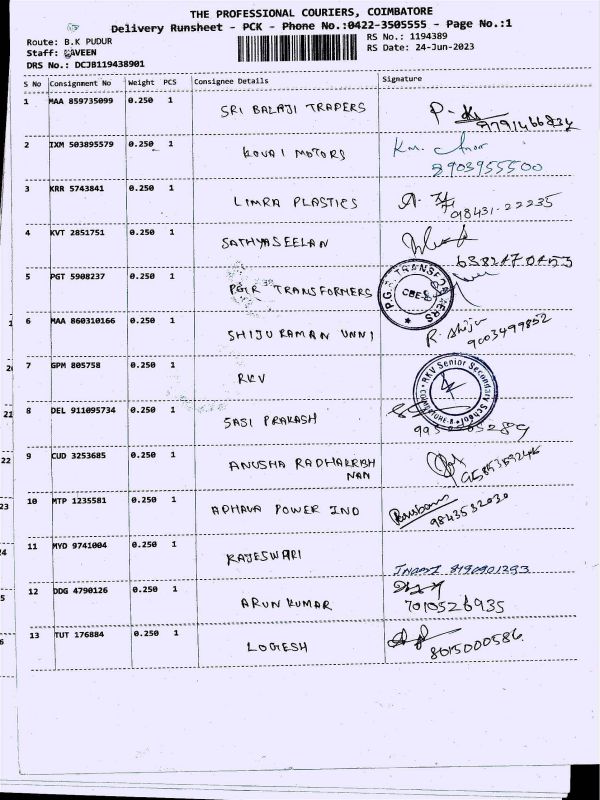 THE PROFESSIONAL COURIERS, COIMBATORE
Delivery Runsheet - PCK - Phone No.:0422-3505555 - Page No.:1
Route: B.K PUDUR
RS No.: 1194389
Staff: NAVEEN
RS Date: 24-Jun-2023
DRS No.: DCJB119438901
S No Consignment No Weight PCS Consignee Details Signature
1 MAA 859735099 0.250 1 SRI BALAJI TRADERS
2 IXM 503895579 0.250 1 KOVAI MOTORS Km.
2903955500
3 KRR 5743841 0.250 1 LIMRA PLASTICS
98431-22235
4 KVT 2851751 0.250 1 SATHYASEELAN
5 PGT 5908237 0.250 1 PGR TRANSFORMERS P.G.R TRANSFORMERS CBE-8
6 MAA 860310166 0.250 1 SHIJU RAMAN UNNI R. Shiju
9003499852
7 GPM 805758 0.250 1 RKV RKV Senior Secondary School
8 DEL 911095734 0.250 1 SASI PRAKASH
9 CUD 3253685 0.250 1 ANUSHA RADHAKRISH
NAN
10 MTP 1235581 0.250 1 ADHAVA POWER IND
9843532030
11 MYD 9741004 0.250 1 RAJESWARI
8190901293
12 DDG 4790126 0.250 1 ARUN KUMAR
7010526935
13 TUT 176884 0.250 1 LOGESH
8015000586
21
22
23